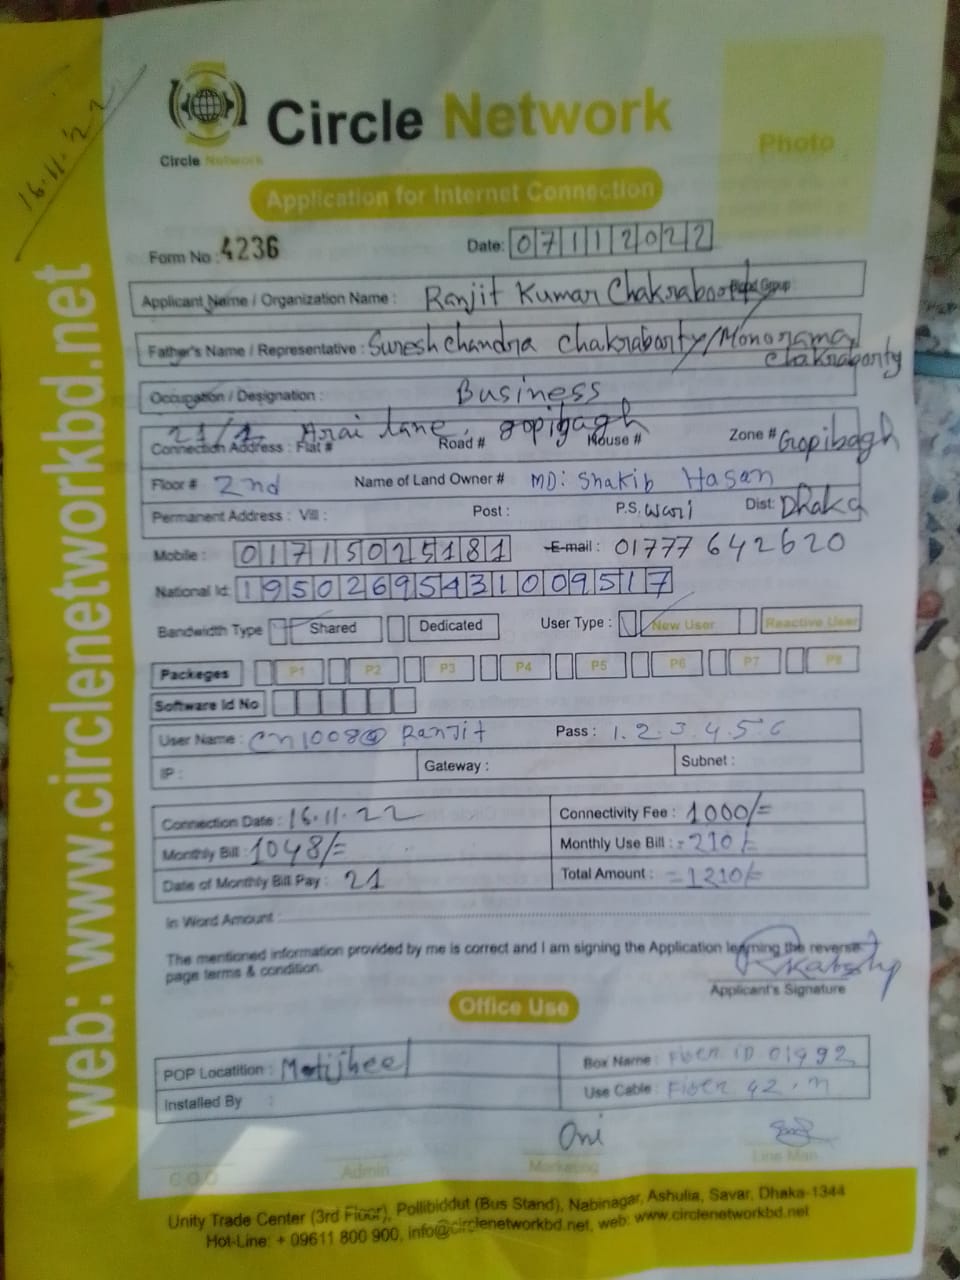 16.11.'22
Circle Network
Circle Network
Photo
Application for Internet Connection
Form No : 4236
Date: 07112022
Applicant Name / Organization Name : Ranjit Kumar Chakraborty Blood Group :
Father's Name / Representative : Suresh chandra Chakraborty/Monorama
Chakraborty
Occupation / Designation : Business
21/1, Arai lane, gopibagh
Connection Address : Flat # Road # House # Zone # Gopibagh
Floor # 2nd Name of Land Owner # MD: Shakib Hasan
Permanent Address : Vill : Post : P.S. wari Dist: Dhaka
Mobile : 01715025181 E-mail : 01777 642620
National Id: 19502695431009517
Bandwidth Type Shared Dedicated User Type : New User Reactive User
Packeges P1 P2 P3 P4 P5 P6 P7 P8
Software Id No
User Name : CN1008@ Ranjit Pass : 1.2.3.4.5.6
IP : Gateway : Subnet :
Connection Date : 16.11.22 Connectivity Fee : 1000/=
Monthly Bill : 1048/= Monthly Use Bill : = 210/=
Date of Monthly Bill Pay : 21 Total Amount : = 1210/=
In Word Amount :
The mentioned information provided by me is correct and I am signing the Application learning the reverse
page terms & condition.
Applicant's Signature
Office Use
POP Locatition : Motijheel Box Name : Fiber ID 01992
Installed By : Use Cable : Fiber 42.m
Oni
C.O.O Admin Marketing Line Man
Unity Trade Center (3rd Floor), Pollibiddut (Bus Stand), Nabinagar, Ashulia, Savar, Dhaka-1344
Hot-Line: + 09611 800 900, info@circlenetworkbd.net, web: www.circlenetworkbd.net
web: www.circlenetworkbd.net